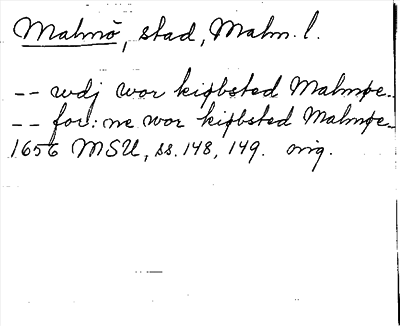 Malmö, stad, Malm. l.
-- wdj wor kiøbsted Malmøe..
-- for:ne wor kiøbsted Malmøe..
1656 MSU, ss. 148, 149. orig.